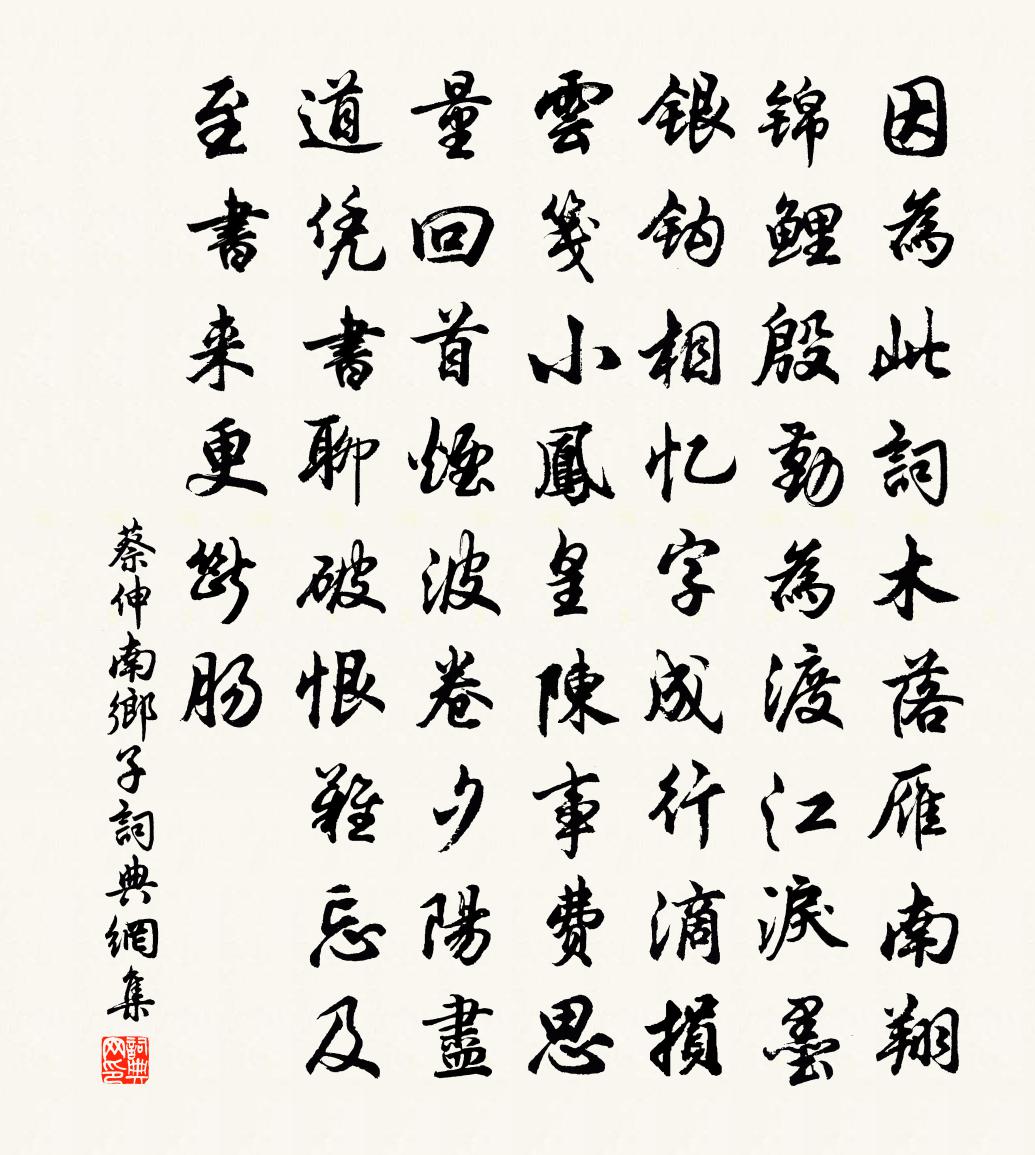 因為此詞木落雁南翔
锦鯉殷勤為渡江淚墨
銀钩相忆字成行滴損
雲箋小鳳皇陳事費思
量回首煙波卷夕陽盡
道凭書聊破恨難忘及
至書来更斷肠
蔡伸南鄉子詞典網集
詞典网印